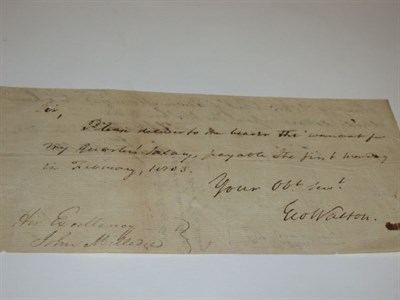 Sir,
Please deliver to the bearer the warrant for
my Quarter's Salary, payable the first monday
in February, 1803.
Your Obt Servt
Geo Walton.
His Excellency
John Milledge